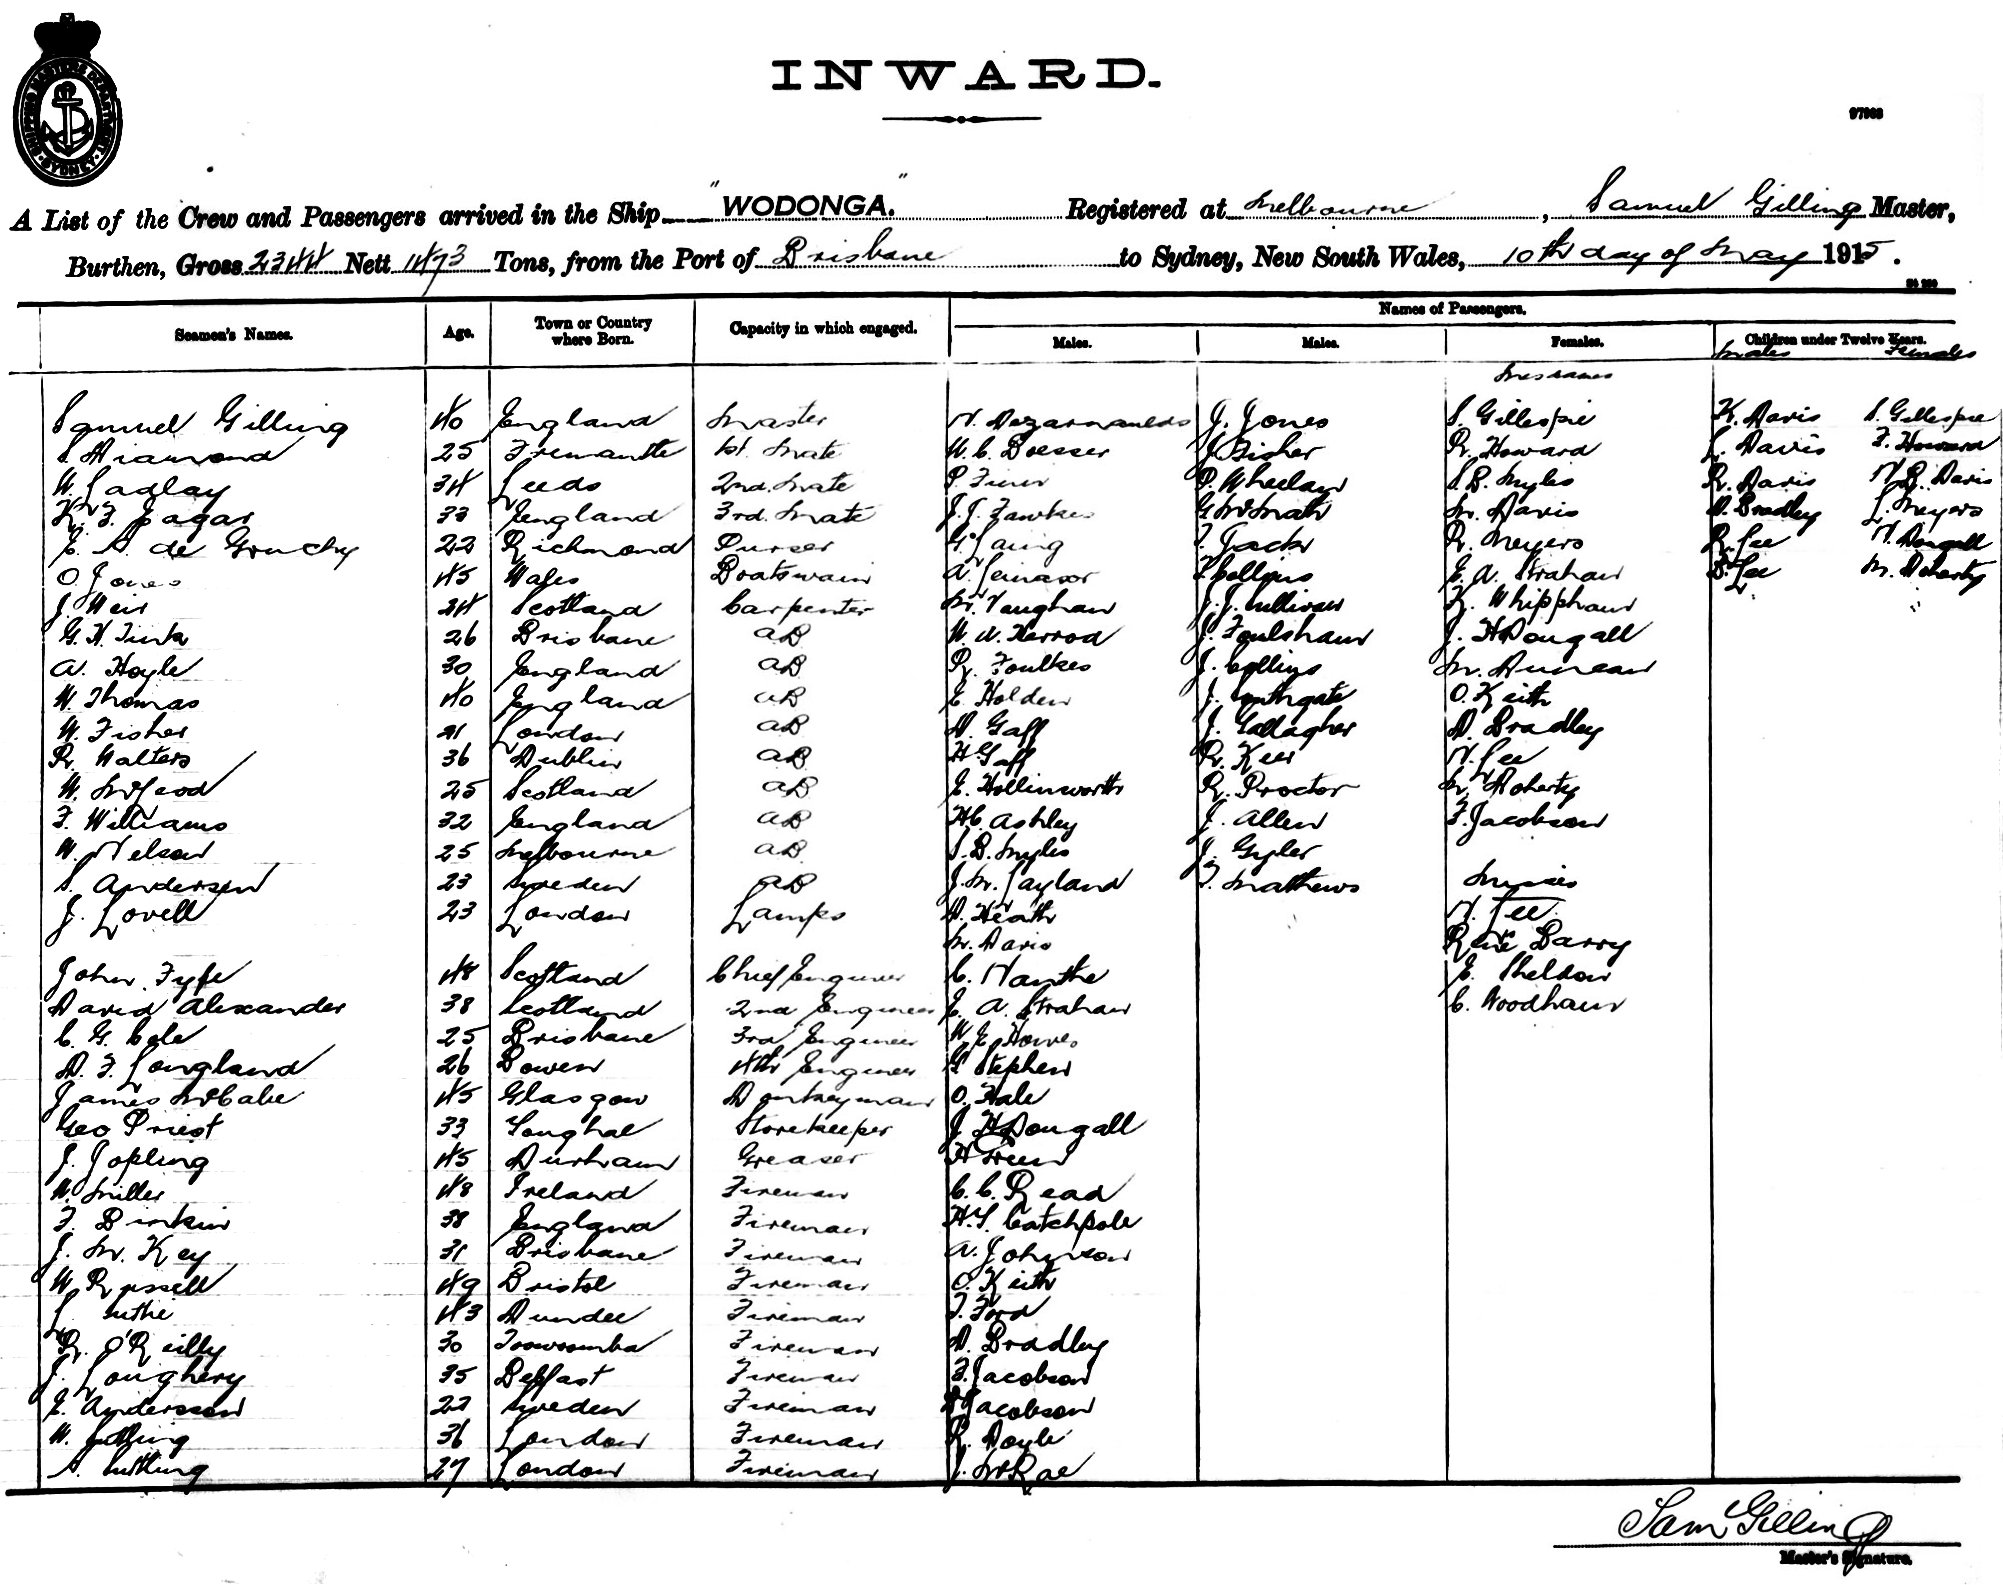 SHIPPING MASTERS DEPARTMENT SYDNEY
INWARD.
A List of the Crew and Passengers arrived in the Ship "WODONGA." Registered at Melbourne, Samuel Gilling Master,
Burthen, Gross 2344 Nett 1473 Tons, from the Port of Brisbane to Sydney, New South Wales, 10th day of May 1915.
Names of Passengers.
Seamen's Names. Age. Town or Country where Born. Capacity in which engaged. Males. Males. Females. Children under Twelve Years.
Males Females
Mesdames
Samuel Gilling 40 England Master J. Jones S. Gillespie K. Davis S. Gillespie
S. Diamond 25 Fremantle 1st. Mate W. C. Boesser J. Fisher R. Howard L. Davis F. Howard
W. Ladlay 34 Leeds 2nd. Mate P. Finn P. Wheelan S. B. Myles R. Davis N. B. Davis
K. F. Jagar 33 England 3rd. Mate J. J. Fawkes M. Davis D. Bradley L. Meyers
E. A. de Gruchy 22 Richmond Purser G. Laing T. Jack R. Meyers R. Lee N. Dougall
O. Jones 45 Wales Boatswain F. Collins E. A. Strahan B. Lee M. Doherty
J. Weir 24 Scotland Carpenter M. Vaughan J. J. Sullivan K. Whipphan
G. H. Tink 26 Brisbane AB W. N. Herrod J. Foulsham J. H Dougall
A. Hoyle 30 England AB R. Foulkes J. Collins M. Duncan
W. Thomas 40 England AB E. Holden J. Southgate O. Keith
W. Fisher 21 London AB D. Gaff J. Gallagher D. Bradley
R. Walters 36 Dublin AB H. Gaff R. Keer N. Lee
W. McLeod 25 Scotland AB E. Hollinworth R. Proctor M. Doherty
F. Williams 32 England AB H. C. Ashley J. Allen F. Jacobson
W. Nelson 25 Melbourne AB S. B. Myles J. Gyler
S. Andersen 23 Sweden AB J. M. Layland T. Mathews Misses
J. Lovell 23 London Lamps D. Heath N. Lee
M. Davis Rene Barry
John Fyfe 48 Scotland Chief Engineer C. Nanthe E. Sheldon
David Alexander 38 Scotland 2nd Engineer E. A. Strahan C. Woodham
C. G. Cole 25 Brisbane 3rd Engineer W. E. Howes
D. F. Longland 26 Bowen 4th Engineer G. Stephen
James McCabe 45 Glasgow Donkeyman O. Hale
Geo Priest 33 Youghal Storekeeper J. H Dougall
J. Jopling 45 Durham Greaser H Green
W. Miller 48 Ireland Fireman C. C. Read
F. Binkin 38 England Fireman H. S. Catchpole
J. M. Key 31 Brisbane Fireman A. Johnson
W. Russell 49 Bristol Fireman O. Keith
L. 43 Dundee Fireman T. Ford
R. O'Reilly 30 Toowoomba Fireman D. Bradley
J. Loughery 35 Belfast Fireman F. Jacobson
E. Andersson 22 Sweden Fireman Jacobson
W. 36 London Fireman R. Doyle
A. 27 London Fireman J. McRae
Sam Gilling
Master's Signature.